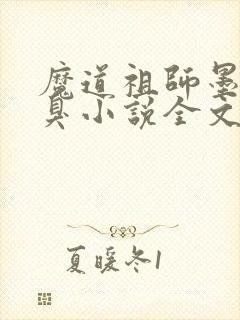 魔道祖師墨
臭小説全文
夏暖冬1